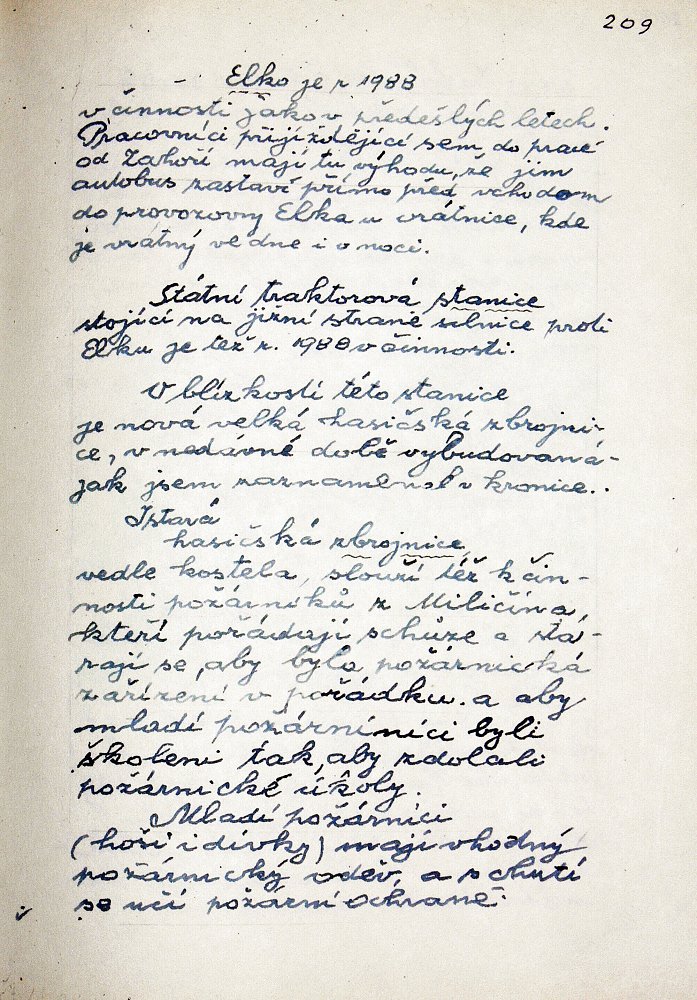 209
- Elko je r 1988
v činnosti jako v předešlých letech.
Pracovníci přijíždějící sem do práce
od Záhoří mají tu výhodu, že jim
autobus zastaví přímo před vchodem
do provozovny Elka u vrátnice, kde
je vrátný ve dne i v noci.
Státní traktorová stanice
stojící na jižní straně silnice proti
Elku je též r. 1988 v činnosti.
V blízkosti této stanice
je nová velká hasičská zbrojni-
ce, v nedávné době vybudovaná -
jak jsem zaznamenal v kronice..
I stará
hasičská zbrojnice,
vedle kostela, slouží též k čin-
nosti požárníků z Miličína,
kteří pořádají schůze a sta-
rají se, aby byla požárnická
zařízení v pořádku. a aby
mladí požárníníci byli
školeni tak, aby zdolali
požárnické úkoly.
Mladí požárníci
(hoši i dívky) mají vhodný
požárnický oděv, a s chutí
se učí požární ochraně.